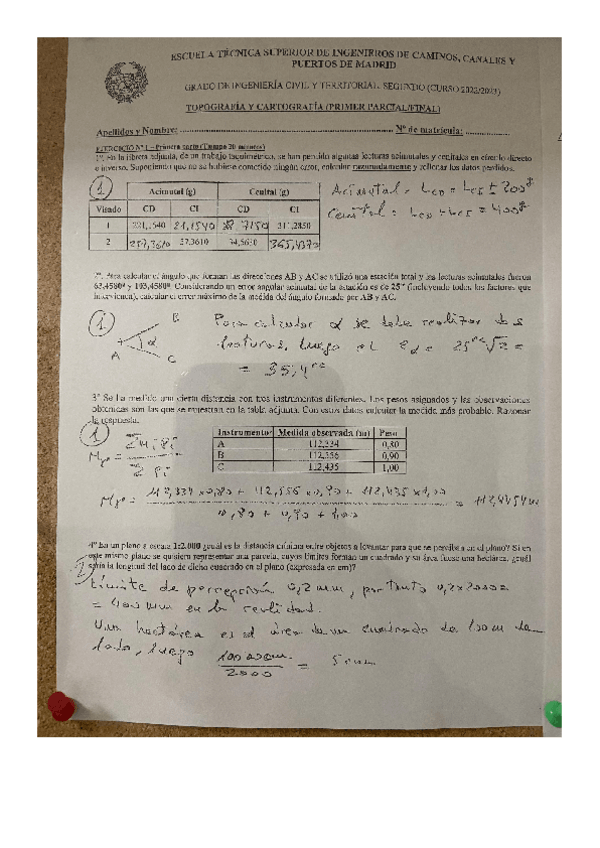 ESCUELA TÉCNICA SUPERIOR DE INGENIEROS DE CAMINOS, CANALES Y
PUERTOS DE MADRID
GRADO DE INGENIERÍA CIVIL Y TERRITORIAL. SEGUNDO (CURSO 2022/2023)
TOPOGRAFÍA Y CARTOGRAFÍA (PRIMER PARCIAL/FINAL)
Apellidos y Nombre: Nº de matrícula:
EJERCICIO Nº 1 – Primera parte (Tiempo 20 minutos)
1º. En la libreta adjunta, de un trabajo taquimétrico, se han perdido algunas lecturas acimutales y cenitales en círculo directo
e inverso. Suponiendo que no se hubiese cometido ningún error, calcular razonadamente y rellenar los datos perdidos.
1
Acimutal (g) Cenital (g)
Visado CD CI CD CI
1 221,1540 21,1540 88,7150 311,2850
2 257,3610 57,3610 34,5630 365,4370
Acimutal = LCD = LCI ± 200g
Cenital = LCD + LCI = 400g
2º. Para calcular el ángulo que forman las direcciones AB y AC se utilizó una estación total y las lecturas acimutales fueron
63,4580g y 103,4580g. Considerando un error angular acimutal de la estación es de 25cc (incluyendo todos los factores que
intervienen), calcular el error máximo de la medida del ángulo formado por AB y AC.
1
B
α
A
C
Para calcular α se debe realizar dos
lecturas, luego el eα = 25cc √2 =
= 35,4cc
3º Se ha medido una cierta distancia con tres instrumentos diferentes. Los pesos asignados y las observaciones
obtenidas son las que se muestran en la tabla adjunta. Con estos datos calcular la medida más probable. Razonar
la respuesta.
1
Instrumento Medida observada (m) Peso
A 112,334 0,80
B 112,556 0,90
C 112,435 1,00
112,334 x 0,80 + 112,556 x 0,90 + 112,435 x 1,00
0,80 + 0,90 + 1,00
= 112,4454 m
4º En un plano a escala 1:2.000 ¿cuál es la distancia mínima entre objetos a levantar para que se perciban en el plano? Si en
este mismo plano se quisiera representar una parcela, cuyos límites forman un cuadrado y su área fuese una hectárea, ¿cuál
sería la longitud del lado de dicho cuadrado en el plano (expresada en cm)?
Límite de percepción 0,2 mm, por tanto 0,2x2000 =
= 400 mm en la realidad.
Una hectárea es el área de un cuadrado de 100 m de
lado, luego
10000 cm
2000
= 5 cm